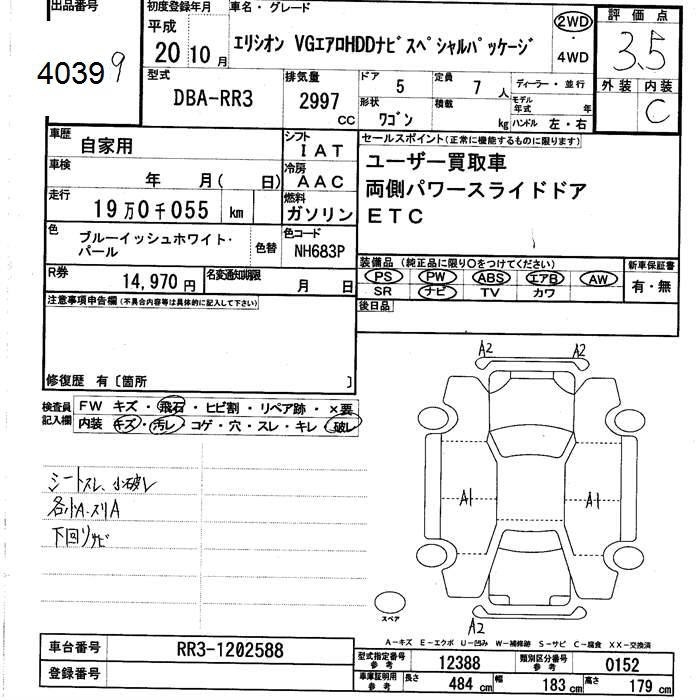 出品番号 初度登録年月 車名・グレード 評価点
平成 20 10月 エリシオン VGエアロHDDナビスペシャルパッケージ 2WD ・ 4WD 3.5
40399
型式 排気量 ドア 定員 ディーラー・並行 外装 内装
DBA-RR3 2997 CC 5 7人 モデル年式 年 C
形状 ワゴン 積載 kg ハンドル 左・右
車歴 自家用 シフト IAT セールスポイント(正常に機能するものに限ります)
車検 年 月( 日) 冷房 AAC ユーザー買取車
走行 19万0千055 km 燃料 ガソリン 両側パワースライドドア
ETC
色 ブルーイッシュホワイト・パール 色替 色コード NH683P
装備品(純正品に限り○をつけてください) 新車保証書
R券 14,970円 名変通知期限 月 日 PS PW ABS エアB AW 有・無
SR ナビ TV カワ
注意事項申告欄(不具合内容等は具体的に記入して下さい) 後日品
修復歴 有〔箇所 〕
検査員記入欄 FW キズ・飛石・ヒビ割・リペア跡・×要
内装 キズ・汚レ・コゲ・穴・スレ・キレ・破レ
A2 A2
シートスレ、小破レ
各小A.スリA
下回りサビ
A1 A1
スペア
A2
A-キズ E-エクボ U-凹み W-補修跡 S-サビ C-腐食 XX-交換済
車台番号 RR3-1202588
登録番号
型式指定番号 参考 12388 類別区分番号 参考 0152
車庫証明用 参考 長さ 484cm 幅 183cm 高さ 179cm